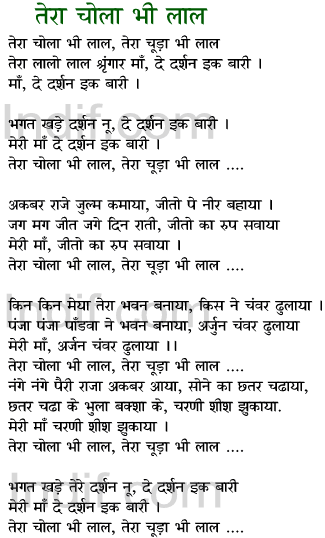 तेरा चोला भी लाल
तेरा चोला भी लाल, तेरा चूड़ा भी लाल
तेरा लालो लाल श्रृंगार माँ, दे दर्शन इक बारी ।
माँ, दे दर्शन इक बारी ।
भगत खड़े दर्शन नू, दे दर्शन इक बारी ।
मेरी माँ दे दर्शन इक बारी ।
तेरा चोला भी लाल, तेरा चूड़ा भी लाल ....
अकबर राजे जुल्म कमाया, जीतो पे नीर बहाया ।
जग मग जीत जगे दिन राती, जीतो का रुप सवाया
मेरी माँ, जीतो का रुप सवाया ।
तेरा चोला भी लाल, तेरा चूड़ा भी लाल ....
किन किन मेया तेरा भवन बनाया, किस ने चंवर ढुलाया ।
पंजा पंजा पाँडवा ने भवन बनाया, अर्जुन चंवर ढुलाया
मेरी माँ, अर्जन चंवर ढुलाया ।।
तेरा चोला भी लाल, तेरा चूड़ा भी लाल ....
नंगे नंगे पैरी राजा अकबर आया, सोने का छतर चढाया,
छतर चढा के भुला बक्शा के, चरणी शीश झुकाया.
मेरी माँ चरणी शीश झुकाया ।
तेरा चोला भी लाल, तेरा चूड़ा भी लाल ....
भगत खड़े तेरे दर्शन नू, दे दर्शन इक बारी
मेरी माँ दे दर्शन इक बारी ।
तेरा चोला भी लाल, तेरा चूड़ा भी लाल ....
Indif.com
Indif.com
Indif.com